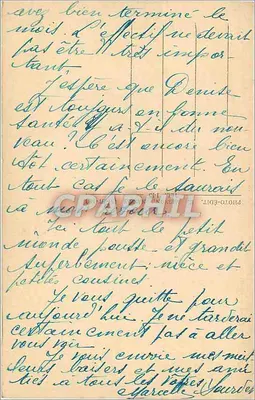 avez bien terminé le
mois. L'effectif ne devrait
pas être très impor-
tant.
J'espère que Denise
est toujours en bonne
santé. Y a-t-il du nou-
veau? C'est encore bien
tôt certainement. En
tout cas je le saurais
à mon
CPARAMA
Ici tout le petit
monde pousse et grandit
superbement: nièce et
petites cousines.
Je vous quitte pour
aujourd'hui. Je ne tarderai
certainement pas à aller
vous voir.
Je vous envoie mes meil-
leurs baisers et mes ami-
tiés à tous les
Marcelle